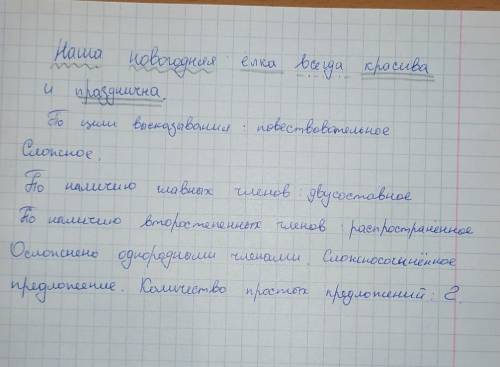 Наша новогодняя елка всегда красива
и празднична.
По цели высказывания: повествовательное
Сложное.
По наличию главных членов: двусоставное
По наличию второстепенных членов: распространённое
Осложнено однородными членами. Сложносочинённое
предложение. Количество простых предложений: 2.